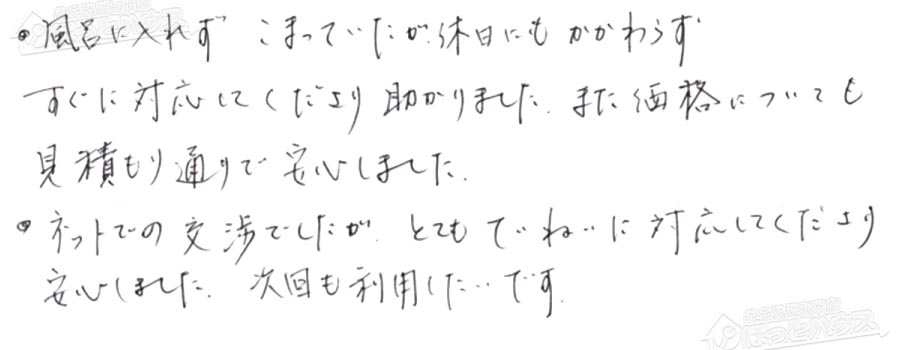 ・風呂に入れず こまっていたが、休日にもかかわらず
すぐに対応してくださり助かりました。また価格についても
見積もり通りで安心しました。
・ネットでの交渉でしたが、とてもていねいに対応してくださり
安心しました。次回も利用したいです。
ほっとハウス